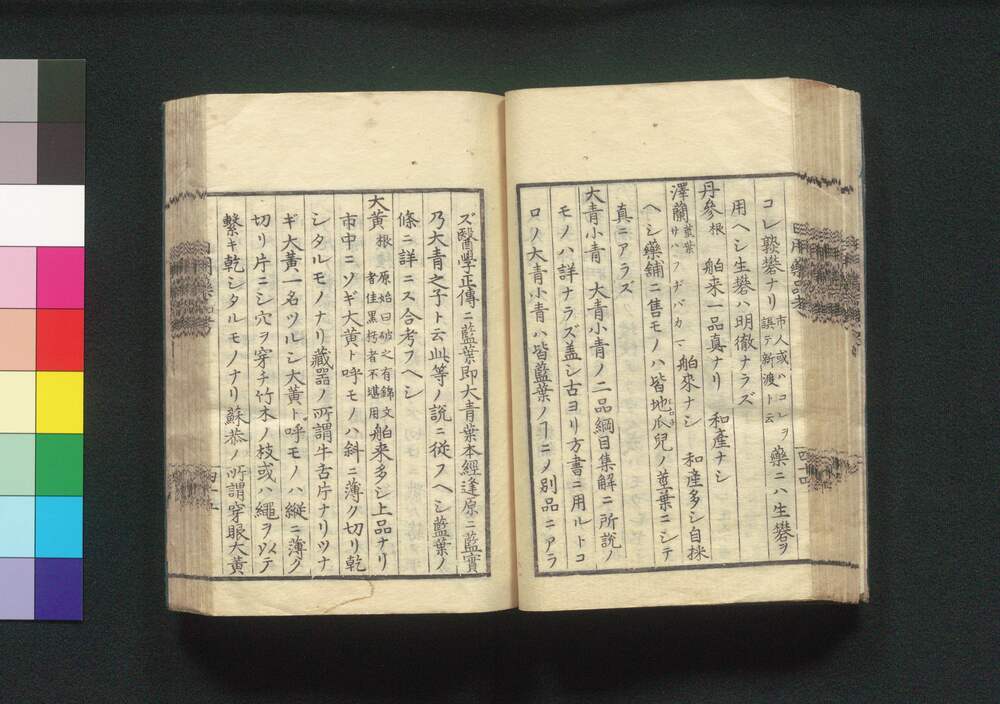 コレ熟礬ナリ市人或ハコレヲ誤テ新渡ト云藥ニハ生礬ヲ
用ヘシ生礬ハ明徹ナラズ
丹參根 舶来一品真ナリ 和産ナシ
澤蘭莖葉サハフヂバカマ 舶來ナシ 和産多シ自採
ヘシ藥舗ニ售モノハ皆地瓜兒ノ莖葉ニシテ
真ニアラズ
大青小青 大青小青ノ二品綱目集解ニ所説ノ
モノハ詳ナラズ盖シ古ヨリ方書ニ用ルトコ
ロノ大青小青ハ皆藍葉ノヿニ〆別品ニアラ
ズ醫學正傳ニ藍葉即大青葉本經逢原ニ藍實
乃大青之子ト云此等ノ説ニ從フヘシ藍葉ノ
條ニ詳ニス合考フヘシ
大黄根 原始曰破之有錦文者佳黒朽者不堪用 舶来多シ上品ナリ
市中ニソギ大黄ト呼モノハ斜ニ薄ク切リ乾
シタルモノナリ藏器ノ所謂牛舌片ナリツナ
ギ大黄一名ツルシ大黄ト呼モノハ縦ニ薄ク
切リ片ニシ穴ヲ穿チ竹木ノ枝或ハ繩ヲ以テ
繫キ乾シタルモノナリ蘇恭ノ所謂穿眼大黄